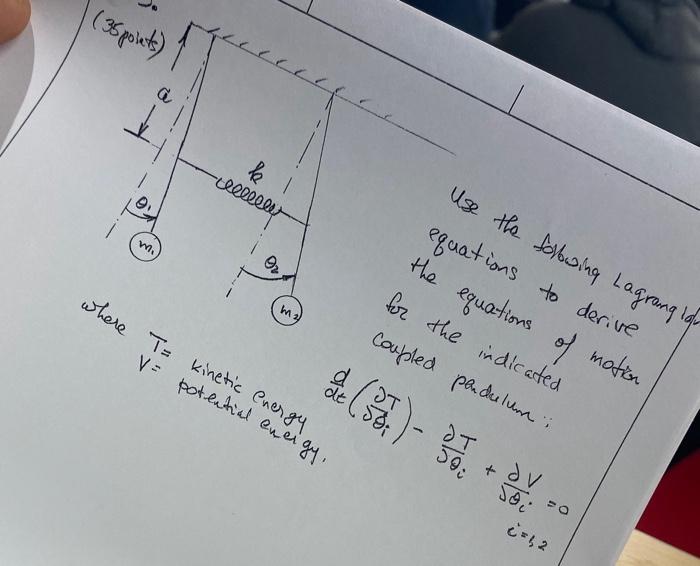 (35 points)
a
k
θ₁
m₁
θ₂
m₂
Use the following Lagrang
equations to derive
the equations of motion
for the indicated
coupled pendulum:
d/dt (∂T/∂θ̇ᵢ) - ∂T/∂θᵢ + ∂V/∂θᵢ = 0
i=1,2
where T= kinetic energy
V= potential energy.